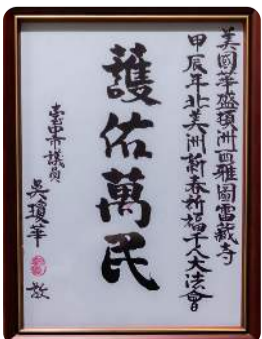 美國華盛頓洲西雅圖雷藏寺
甲辰年北美洲新春祈福千人大法會
護佑萬民
臺中市議員
吳瓊華
敬